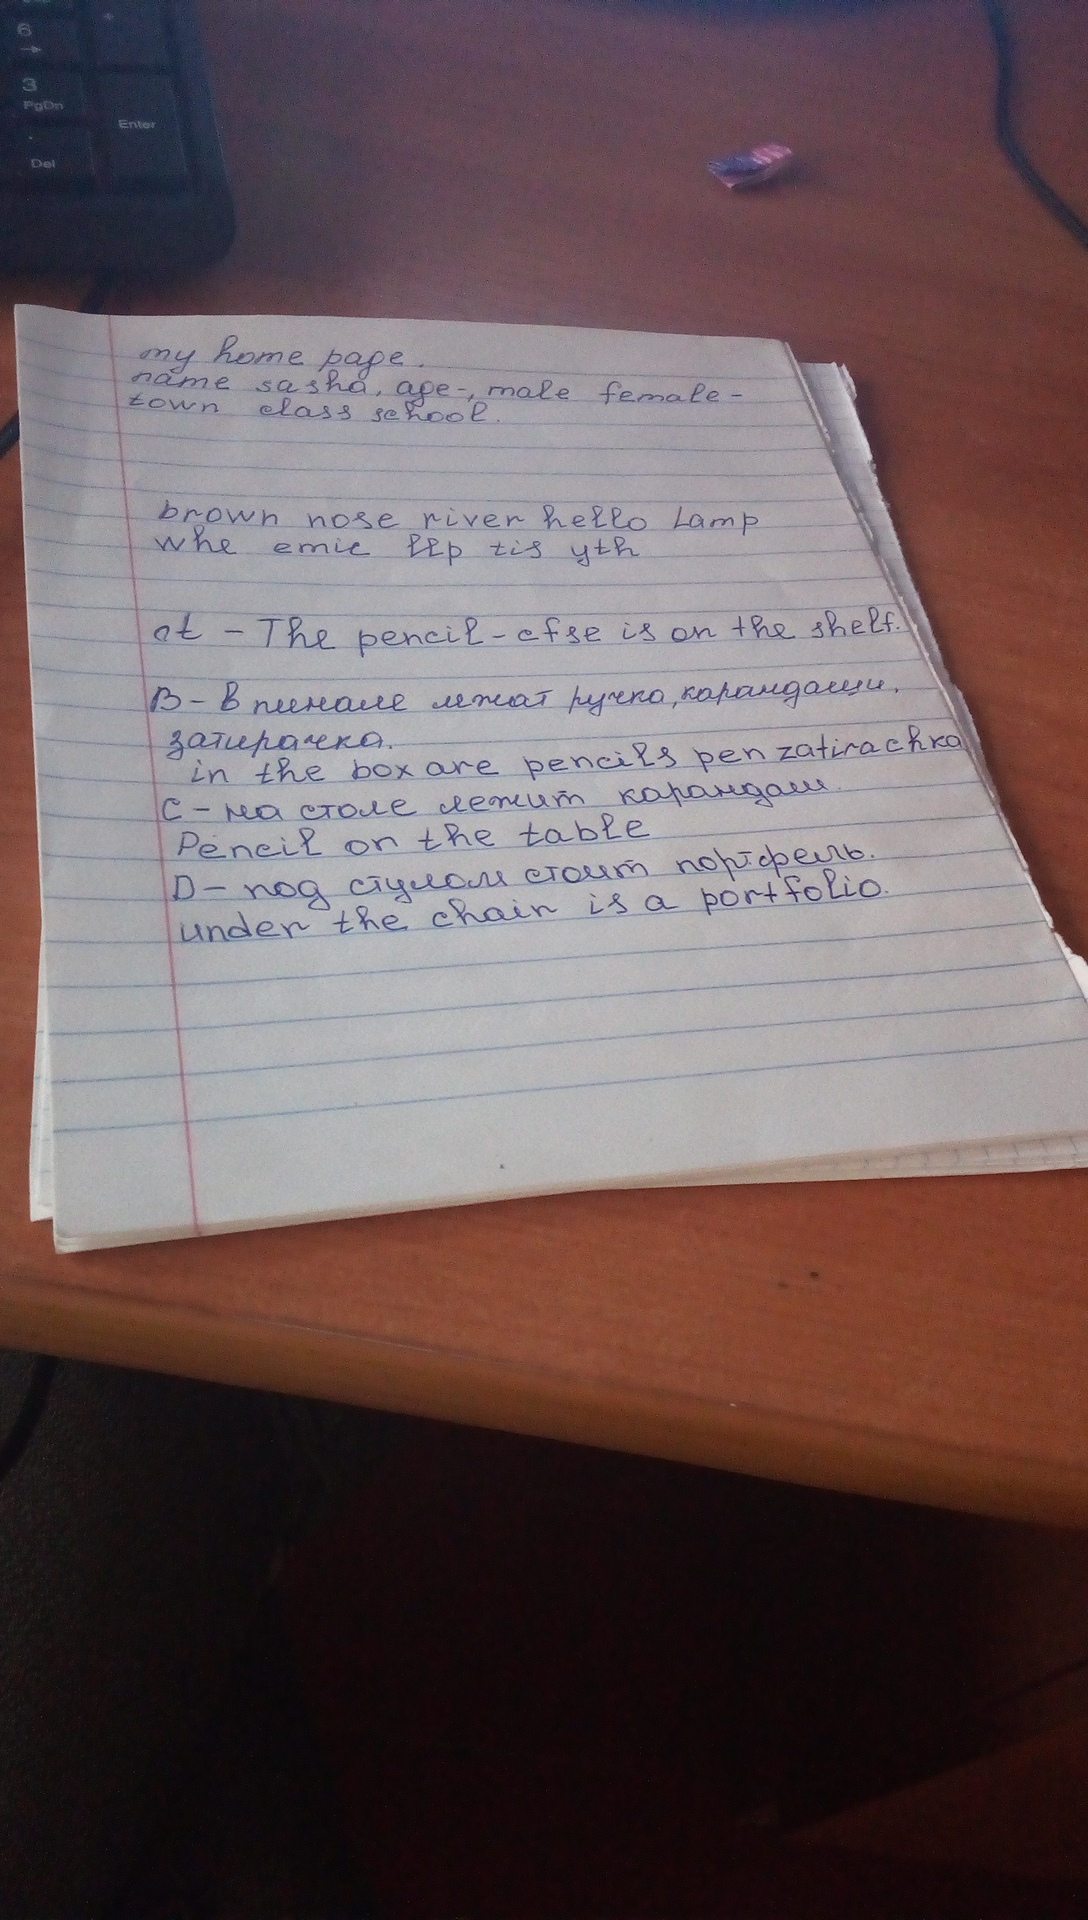 6
→
3
PgDn
.
Del
+
Enter
my home page.
name sasha, age-, male female-
town class school.
brown nose river hello Lamp
whe emic llp tis yth
at - The pencil-cfse is on the shelf.
B - В пинале лежат ручка, карандаши,
затирачка.
in the box are pencils pen zatirachka
C - на столе лежит карандаш.
Pencil on the table
D - под стулом стоит портфель.
under the chair is a portfolio.